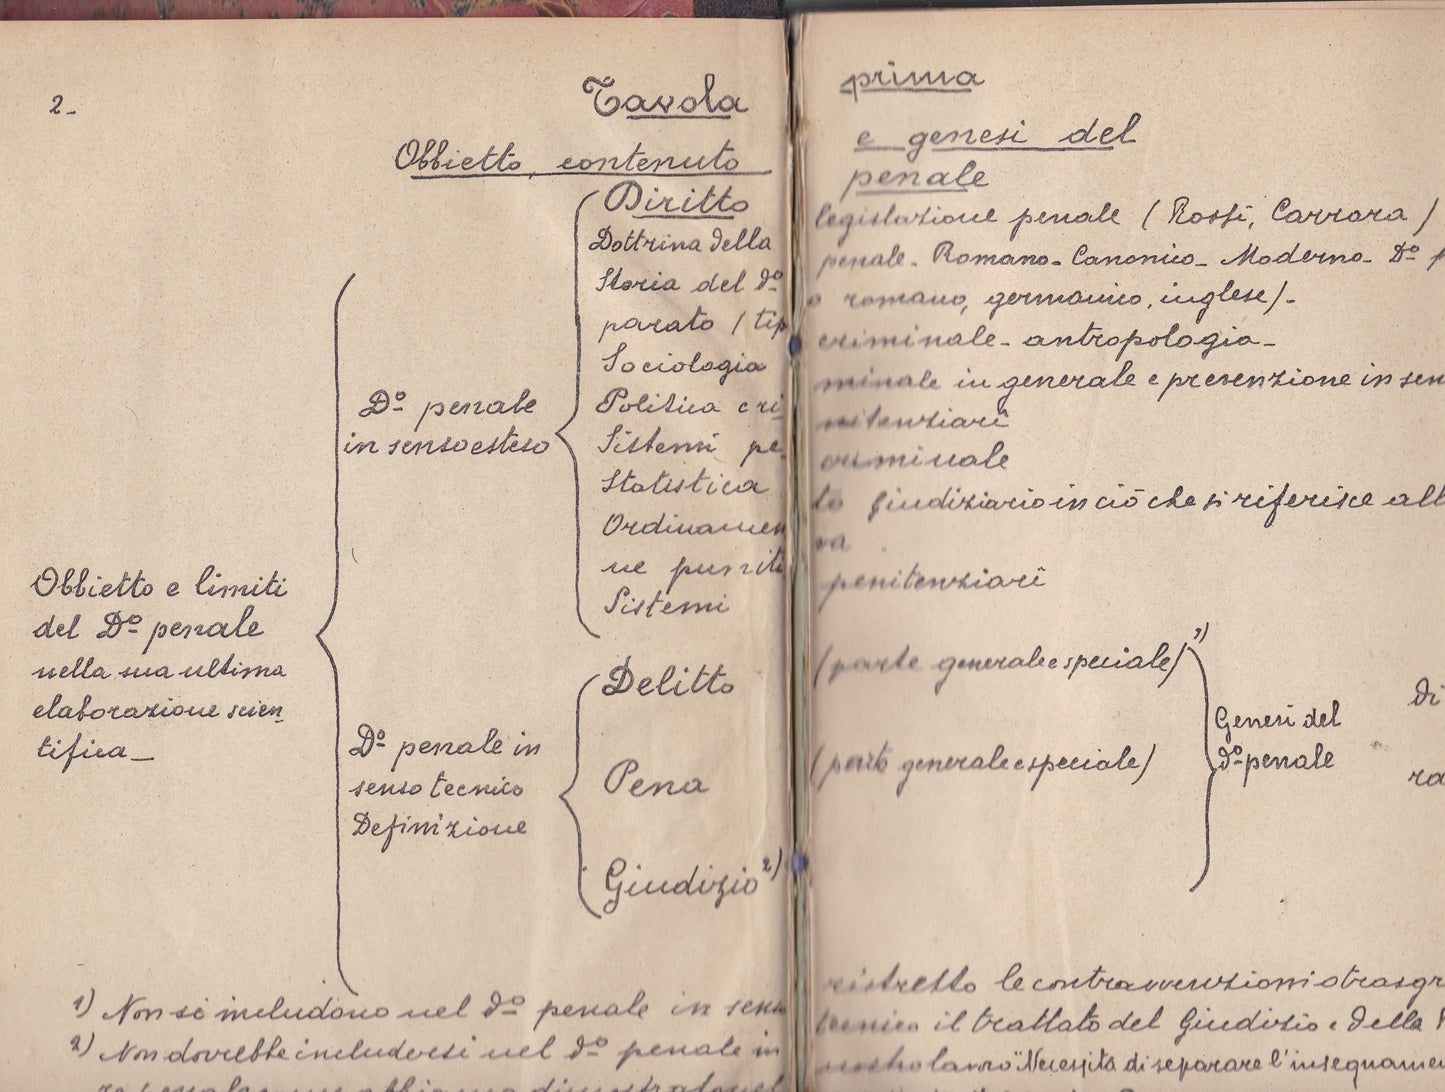 2-
Tavola prima
Obbietto, contenuto e genesi del
Diritto penale
Dottrina della legislazione penale (Rossi, Carrara)
Storia del dº penale - Romano - Canonico - Moderno - Dº
parato (tip o romano, germanico, inglese) -
Sociologia criminale - antropologia -
Politica criminale in generale e prevenzione in sen
Sistemi penitenziarî
Statistica criminale
Ordinamento giudiziario in ciò che si riferisce all
ne punitiva
Sistemi penitenziarî
Dº penale
in senso esteso
Obbietto e limiti
del Dº penale
nella sua ultima
elaborazione scien
tifica -
Dº penale in
senso tecnico
Definizione
Delitto (parte generale e speciale) 1)
Pena (parte generale e speciale)
Giudizio 2)
Genesi del
dº penale
di
ra
1) Non si includono nel dº penale in senso ristretto le contravvenzioni o trasgr
2) Non dovrebbe includersi nel dº penale in tecnico il trattato del Giudizio e della
nostro lavoro "Necessità di separare l'insegname